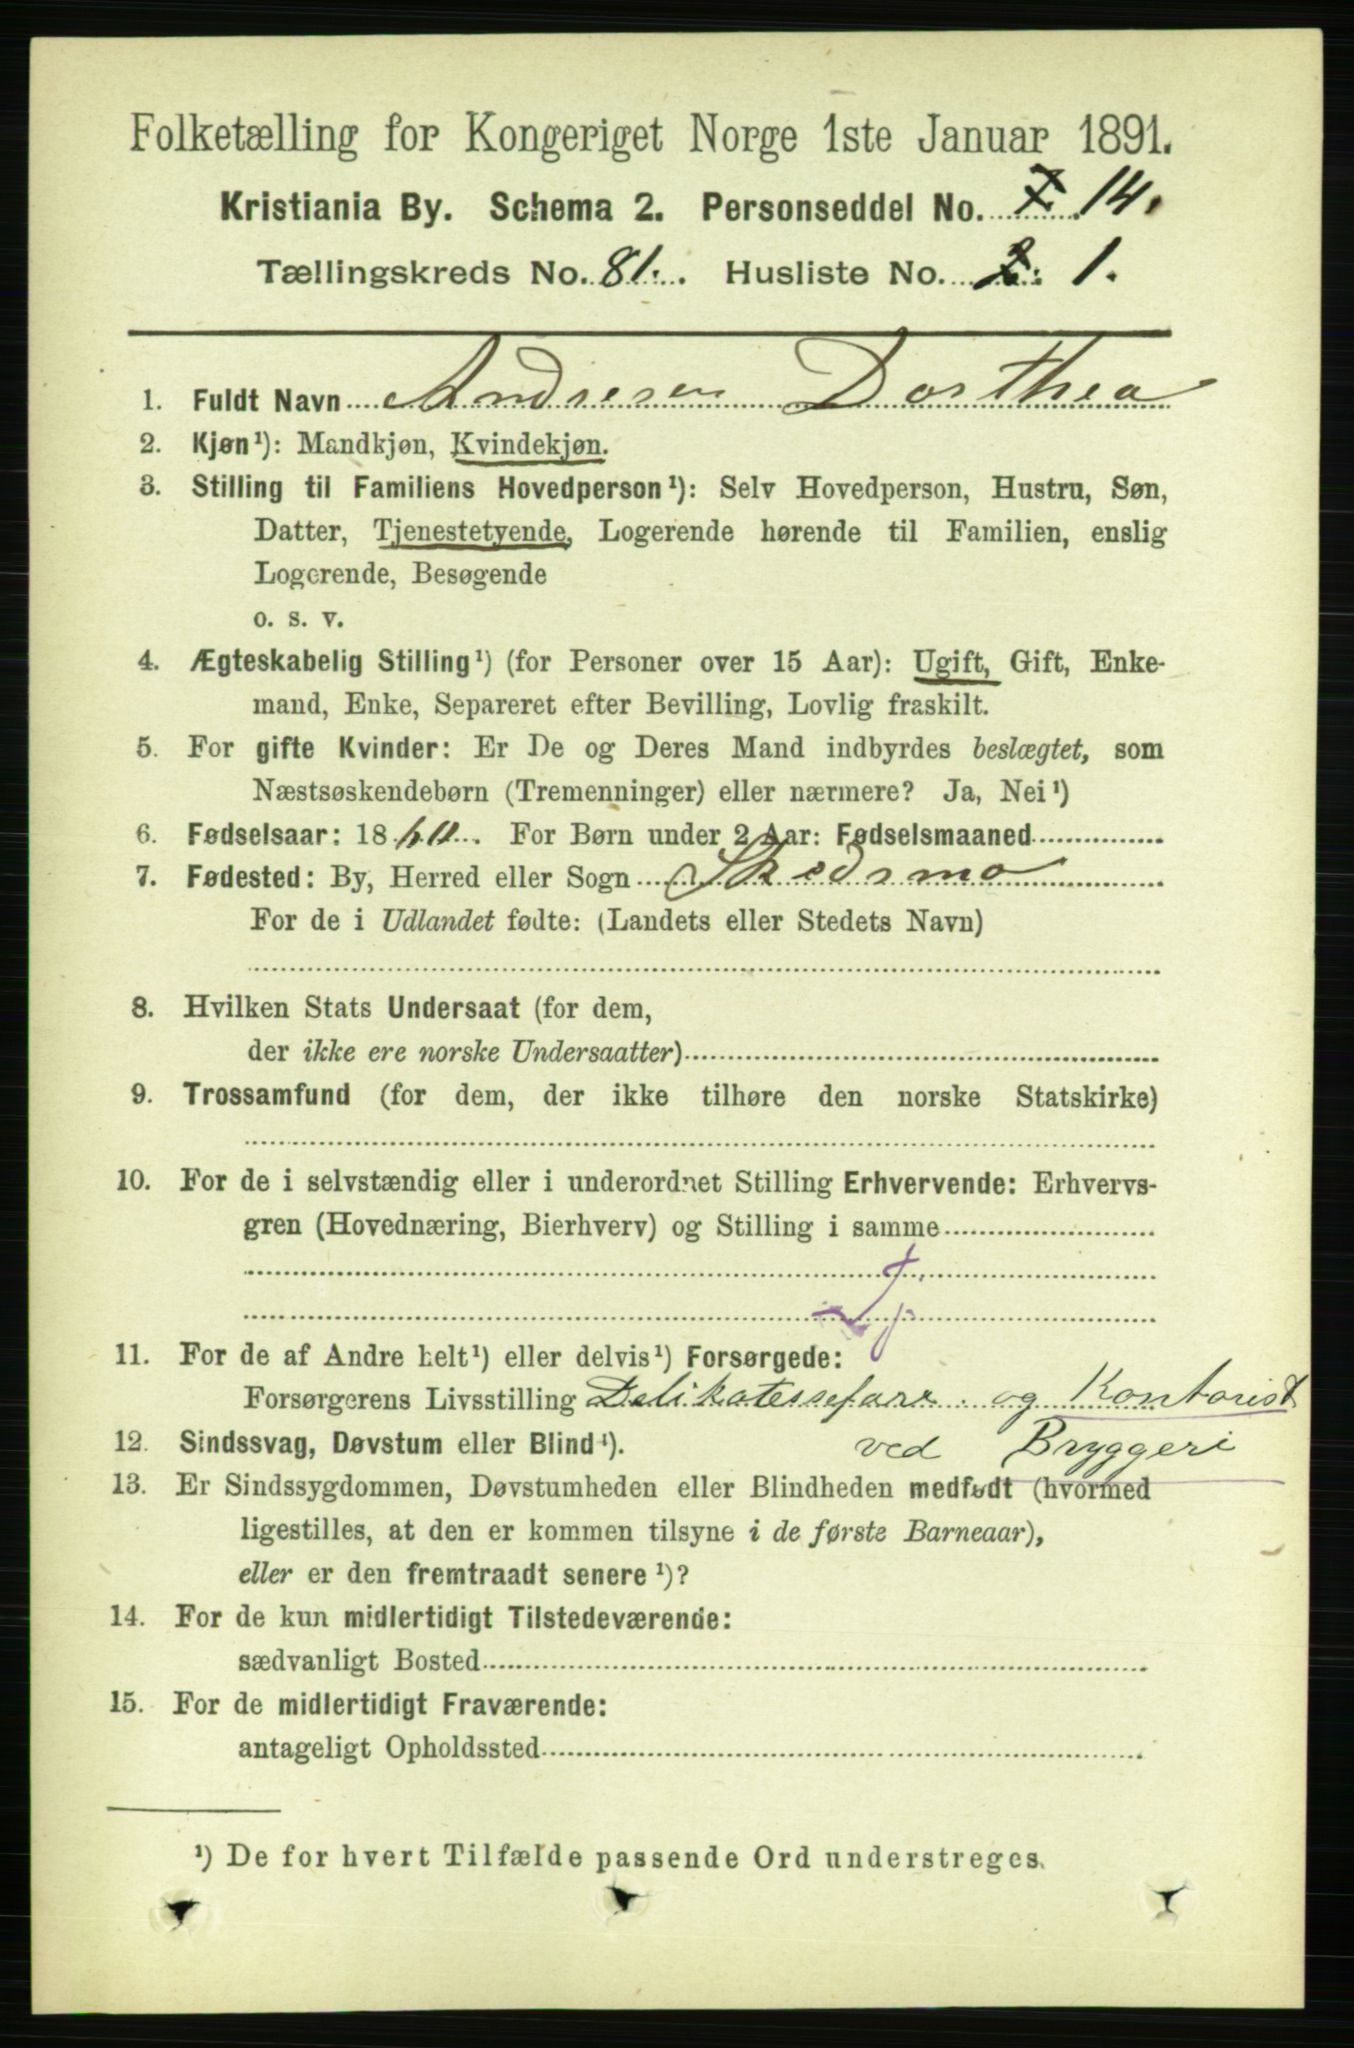 Folketælling for Kongeriget Norge 1ste Januar 1891.
Kristiania By. Schema 2. Personseddel No. 14.
Tællingskreds No. 81. Husliste No. 2. 1.
1. Fuldt Navn Andresen Dorthea
2. Kjøn¹): Mandkjøn, Kvindekjøn.
3. Stilling til Familiens Hovedperson¹): Selv Hovedperson, Hustru, Søn,
Datter, Tjenestetyende, Logerende hørende til Familien, enslig
Logerende, Besøgende
o. s. v.
4. Ægteskabelig Stilling¹) (for Personer over 15 Aar): Ugift, Gift, Enke-
mand, Enke, Separeret efter Bevilling, Lovlig fraskilt.
5. For gifte Kvinder: Er De og Deres Mand indbyrdes beslægtet, som
Næstsøskendebørn (Tremenninger) eller nærmere? Ja, Nei¹)
6. Fødselsaar: 18 . For Børn under 2 Aar: Fødselsmaaned
7. Fødested: By, Herred eller Sogn Skedsmo
For de i Udlandet fødte: (Landets eller Stedets Navn)
8. Hvilken Stats Undersaat (for dem,
der ikke ere norske Undersaatter)
9. Trossamfund (for dem, der ikke tilhøre den norske Statskirke)
10. For de i selvstændig eller i underordnet Stilling Erhvervende: Erhvervs-
gren (Hovednæring, Bierhverv) og Stilling i samme
11. For de af Andre helt¹) eller delvis¹) Forsørgede:
Forsørgerens Livsstilling Delikatesseforr. og Kontorist
12. Sindssvag, Døvstum eller Blind¹). ved Bryggeri
13. Er Sindssygdommen, Døvstumheden eller Blindheden medfødt (hvormed
ligestilles, at den er kommen tilsyne i de første Barneaar),
eller er den fremtraadt senere¹)?
14. For de kun midlertidigt Tilstedeværende:
sædvanligt Bosted
15. For de midlertidigt Fraværende:
antageligt Opholdssted
¹) De for hvert Tilfælde passende Ord understreges.